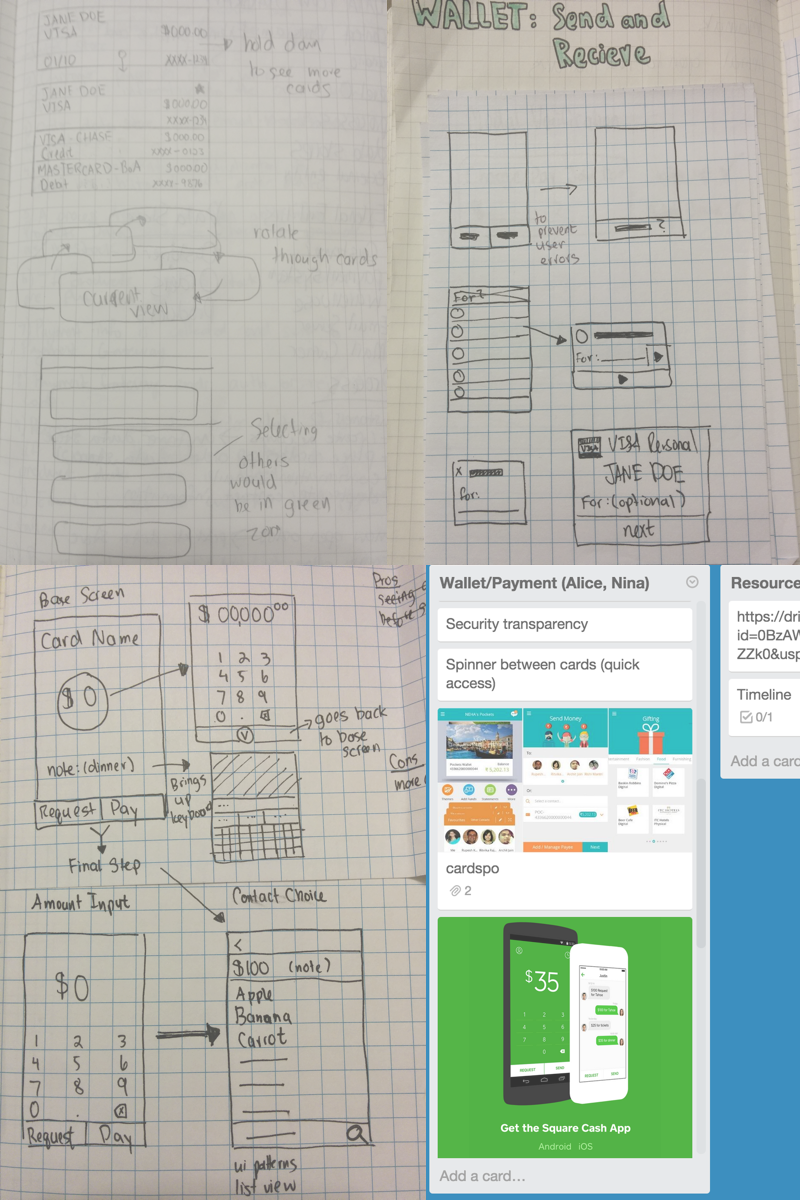 JANE DOE
VISA $000.00
01/10
hold down
to see more
cards
JANE DOE
VISA $000.00
VISA - CHASE $000.00
Credit xxxx-0123
MASTERCARD-BoA $000.00
Debt xxxx-9876
rotate
through cards
current
view
Selecting
others
would
be in green
WALLET: Send and
Recieve
to
prevent
user
errors
?
For?
For:
X
For:
VISA
VISA Personal
JANE DOE
For: (optional)
next
Base Screen
Card Name
$0
note: (dinner)
Request Pay
Final Step
$ 00,000⁰⁰
1 2 3
4 5 6
7 8 9
0 .
goes back
to base
screen
Brings
up
keyboard
Pros
seeing
before
Cons
more
Amount Input
$0
1 2 3
4 5 6
7 8 9
0 .
Request Pay
Contact Choice
<
$100 (note)
Apple
Banana
Carrot
ui patterns
list view
Wallet/Payment (Alice, Nina)
Security transparency
Spinner between cards (quick
access)
Send Money
Gifting
cardspo
2
$35
REQUEST SEND
REQUEST SEND
Get the Square Cash App
Android iOS
Add a card…
Resource
https://dri
id=0BzAW
ZZk0&usp
Timeline
0/1
Add a card